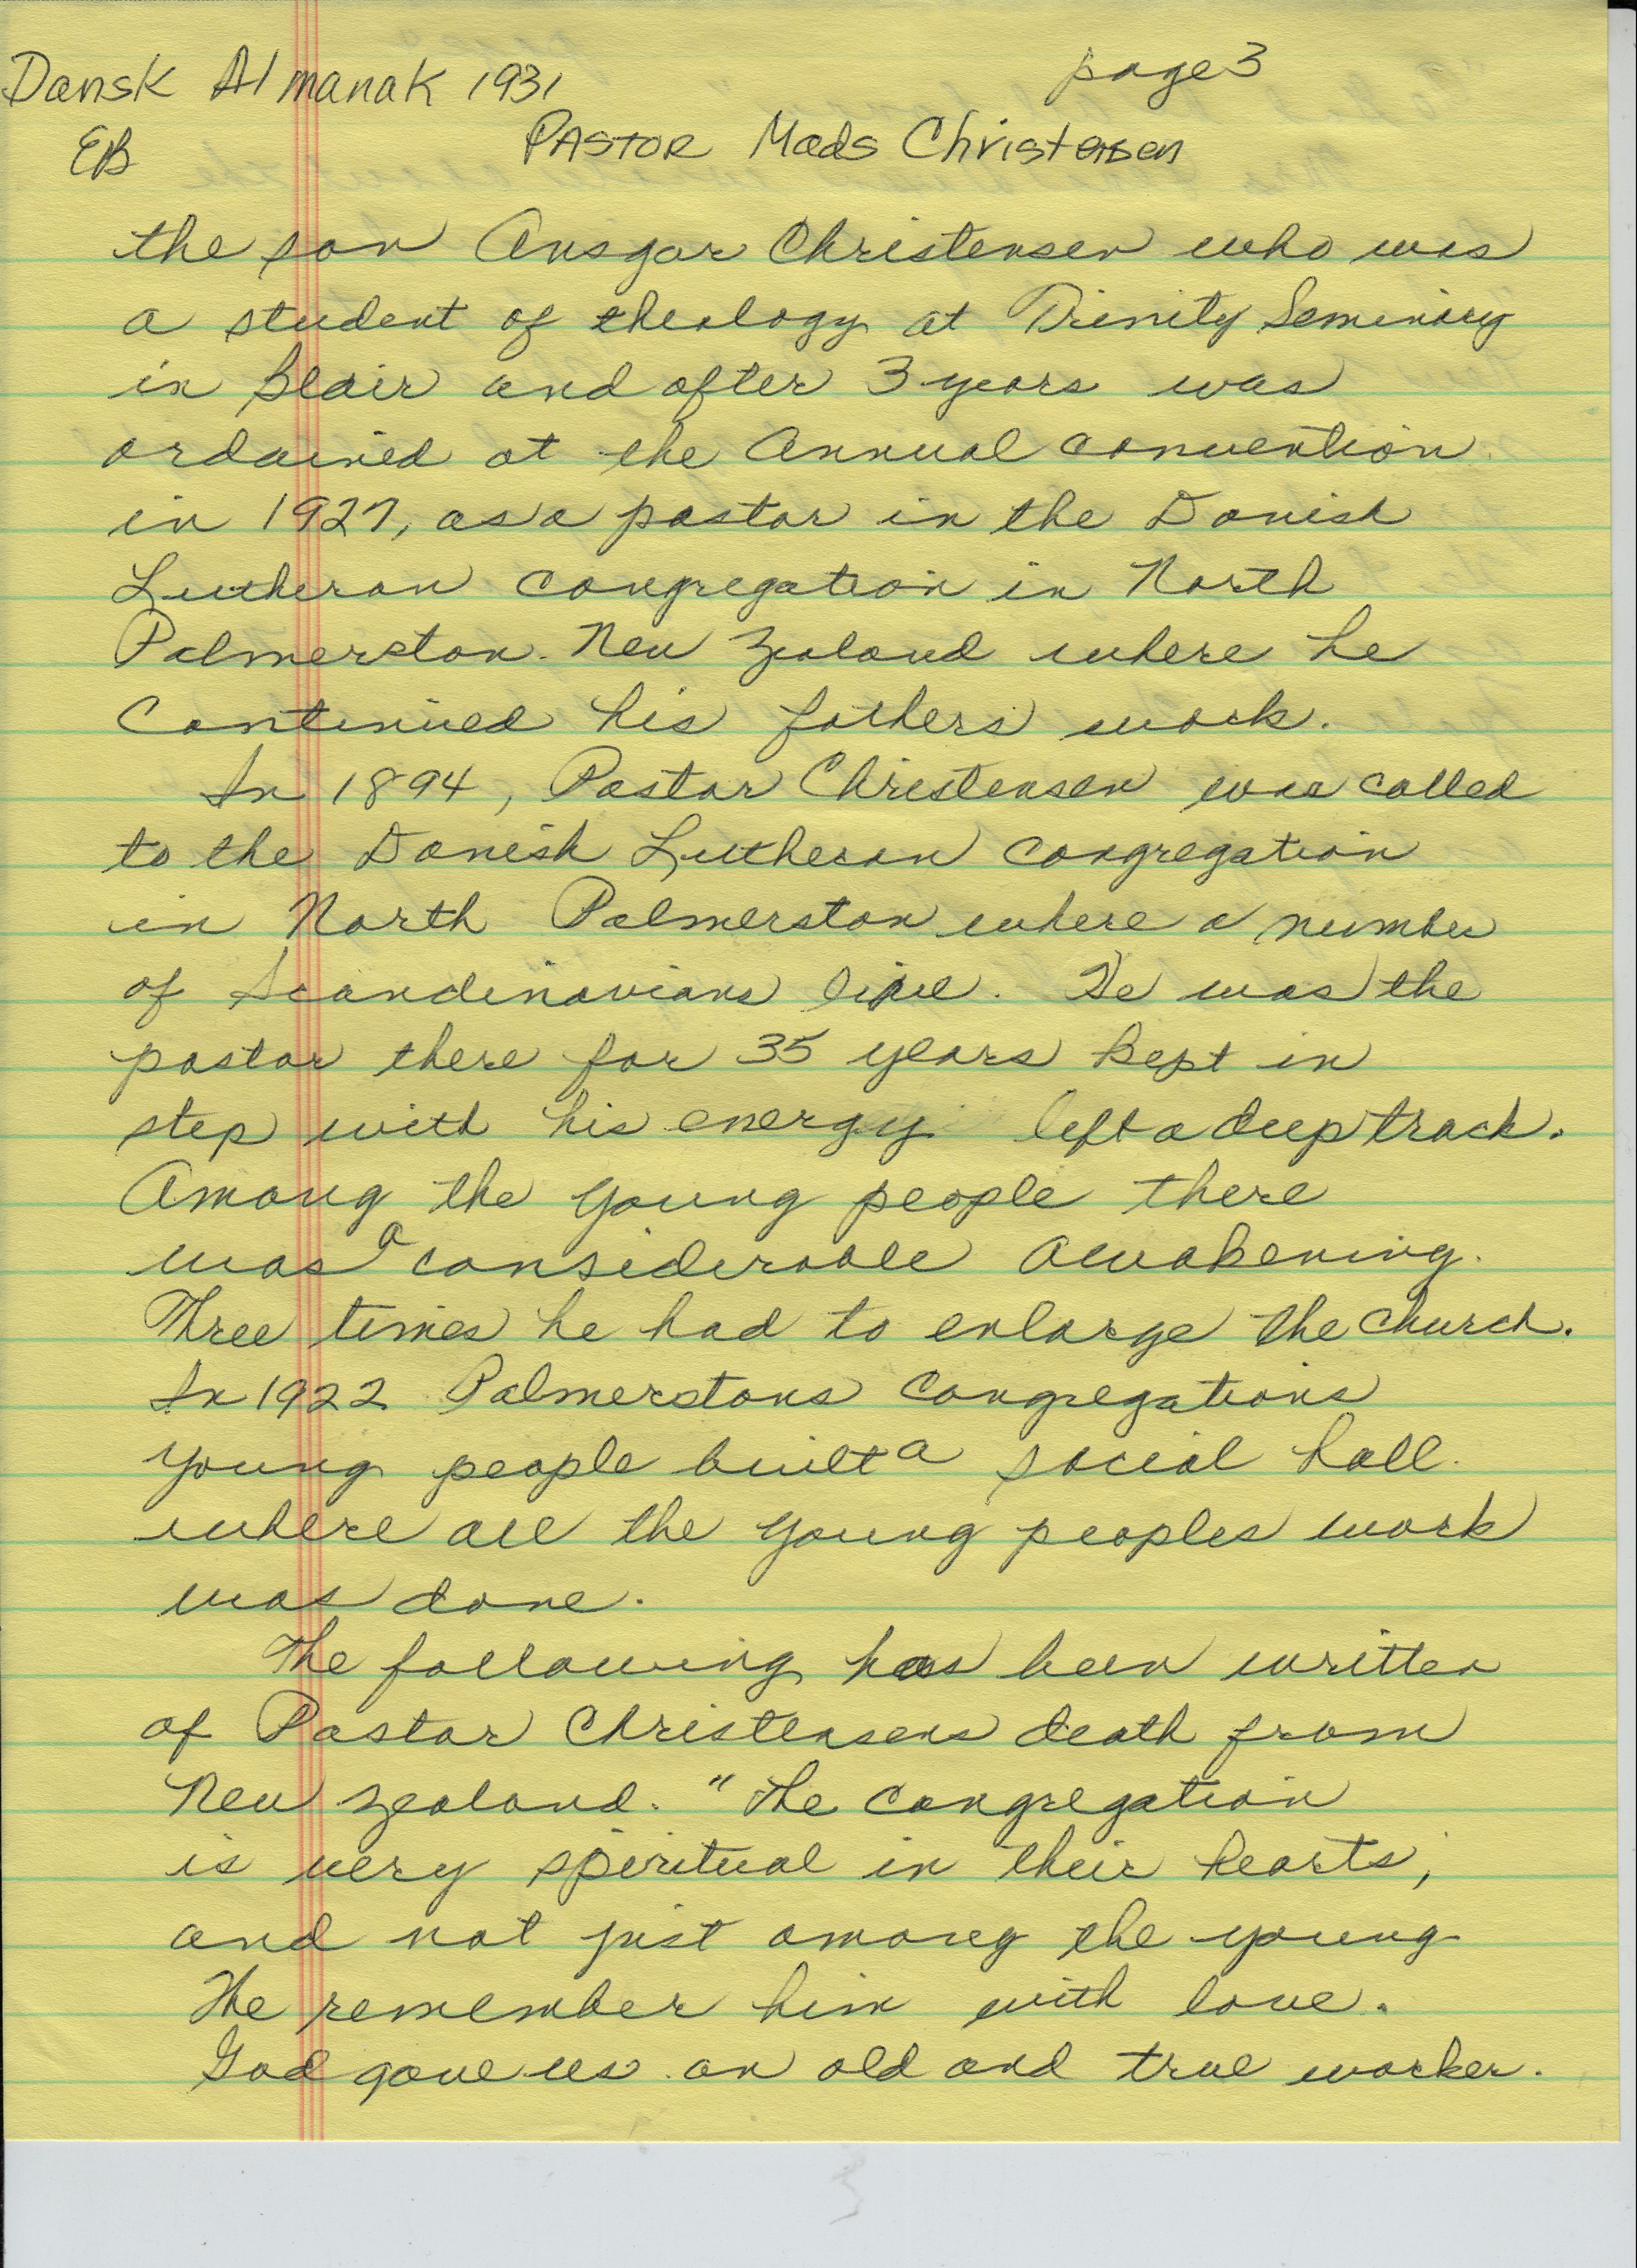 Dansk Almanak 1931
page 3
EB
PASTOR Mads Christensen
the son Ansgar Christensen who was
a student of theology at Trinity Seminary
in Blair and after 3 years was
ordained at the Annual convention
in 1927, as a pastor in the Danish
Lutheran congregation in North
Palmerston. New Zealand where he
continued his fathers work.
In 1894, Pastor Christensen was called
to the Danish Lutheran congregation
in North Palmerston where a number
of Scandinavians live. He was the
pastor there for 35 years kept in
step with his energy left a deep track.
Among the young people there
was a considerable awakening.
Three times he had to enlarge the church.
In 1922 Palmerstons congregations
young people built a social hall.
where all the young peoples work
was done.
The following has been written
of Pastor Christensens death from
New Zealand. "The congregation
is very spiritual in their hearts,
and not just among the young
We remember him with love.
God gave us an old and true worker.
3